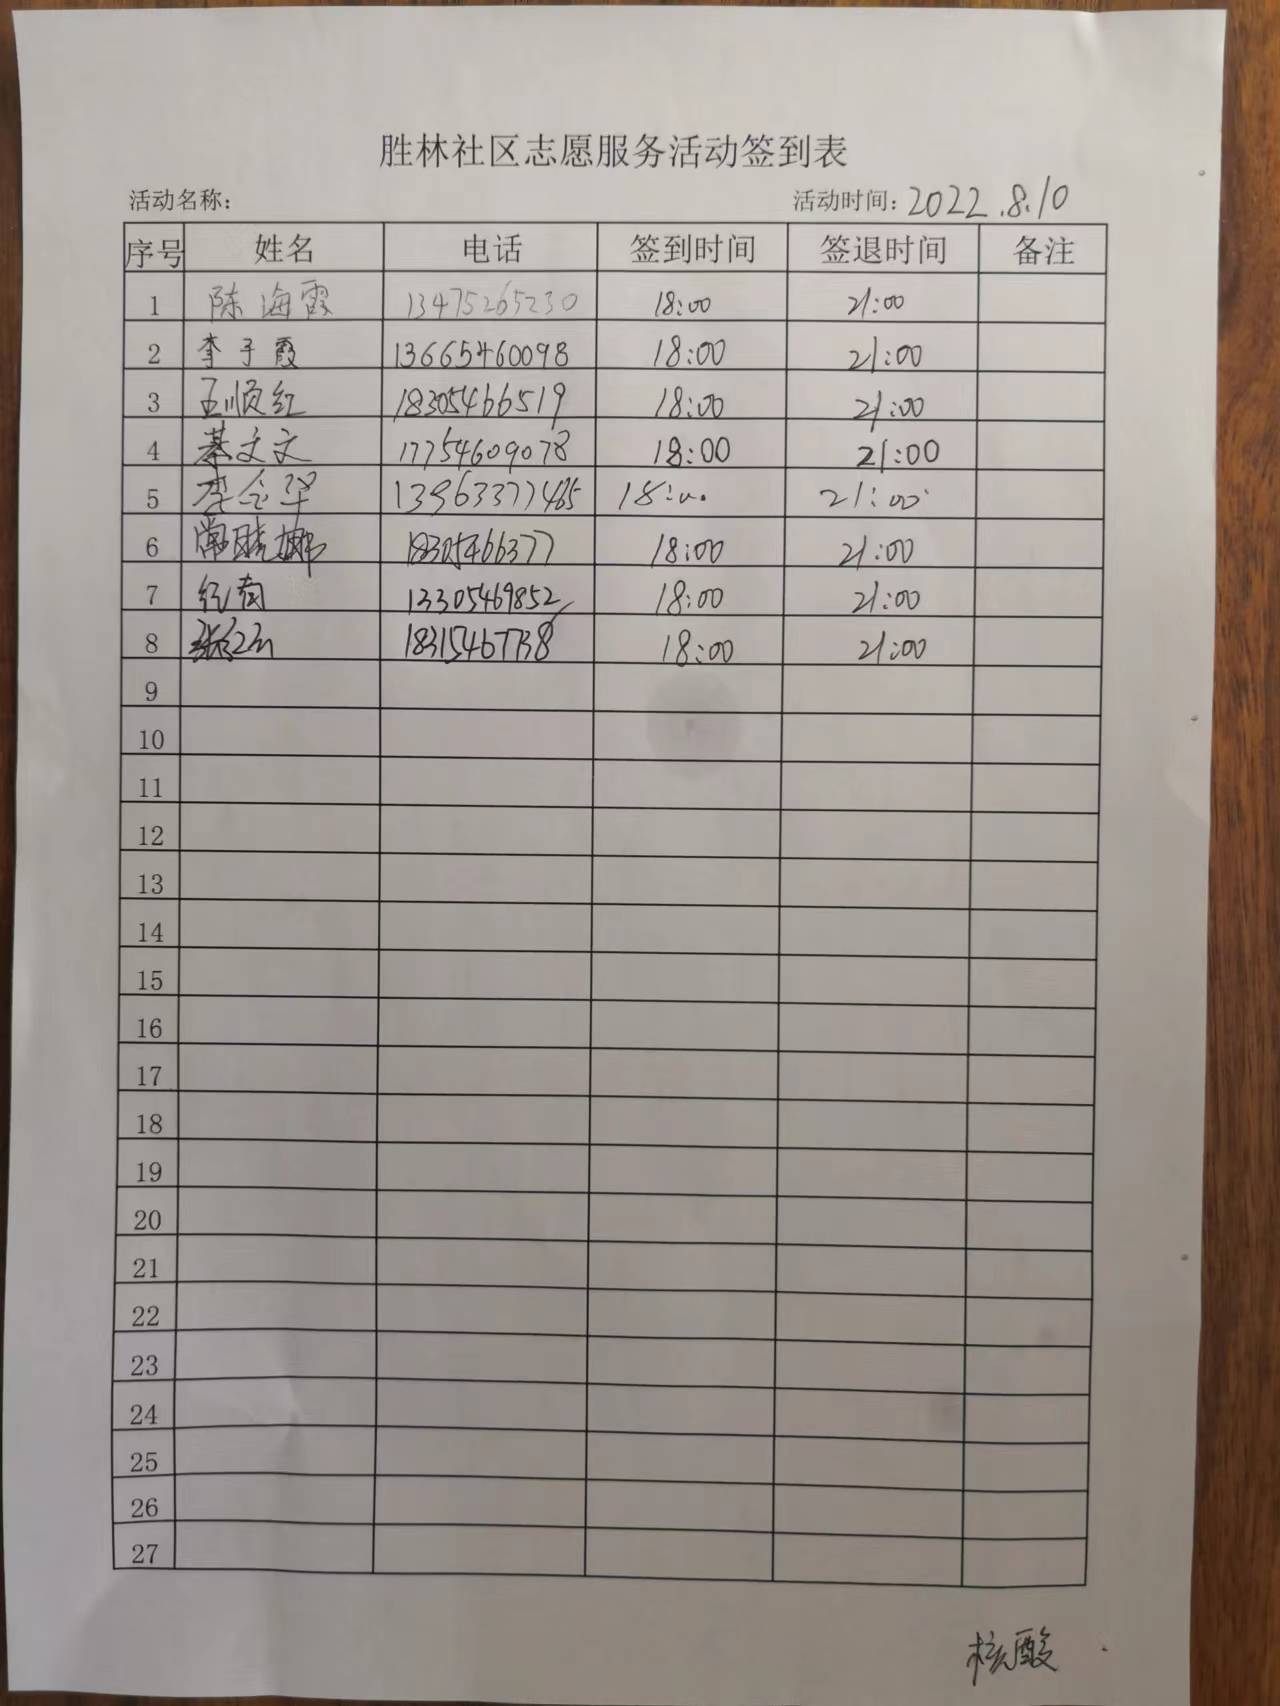 胜林社区志愿服务活动签到表
活动名称： 活动时间：2022.8.10
序号 姓名 电话 签到时间 签退时间 备注
1 陈海霞 13475265230 18:00 21:00
2 李子霞 13665460098 18:00 21:00
3 王顺红 18305466519 18:00 21:00
4 綦文文 17754609078 18:00 21:00
5 李金华 13963377465 18:00 21:00
6 常晓娜 18305466377 18:00 21:00
7 13305469852 18:00 21:00
8 18315467738 18:00 21:00
9
10
11
12
13
14
15
16
17
18
19
20
21
22
23
24
25
26
27
核酸